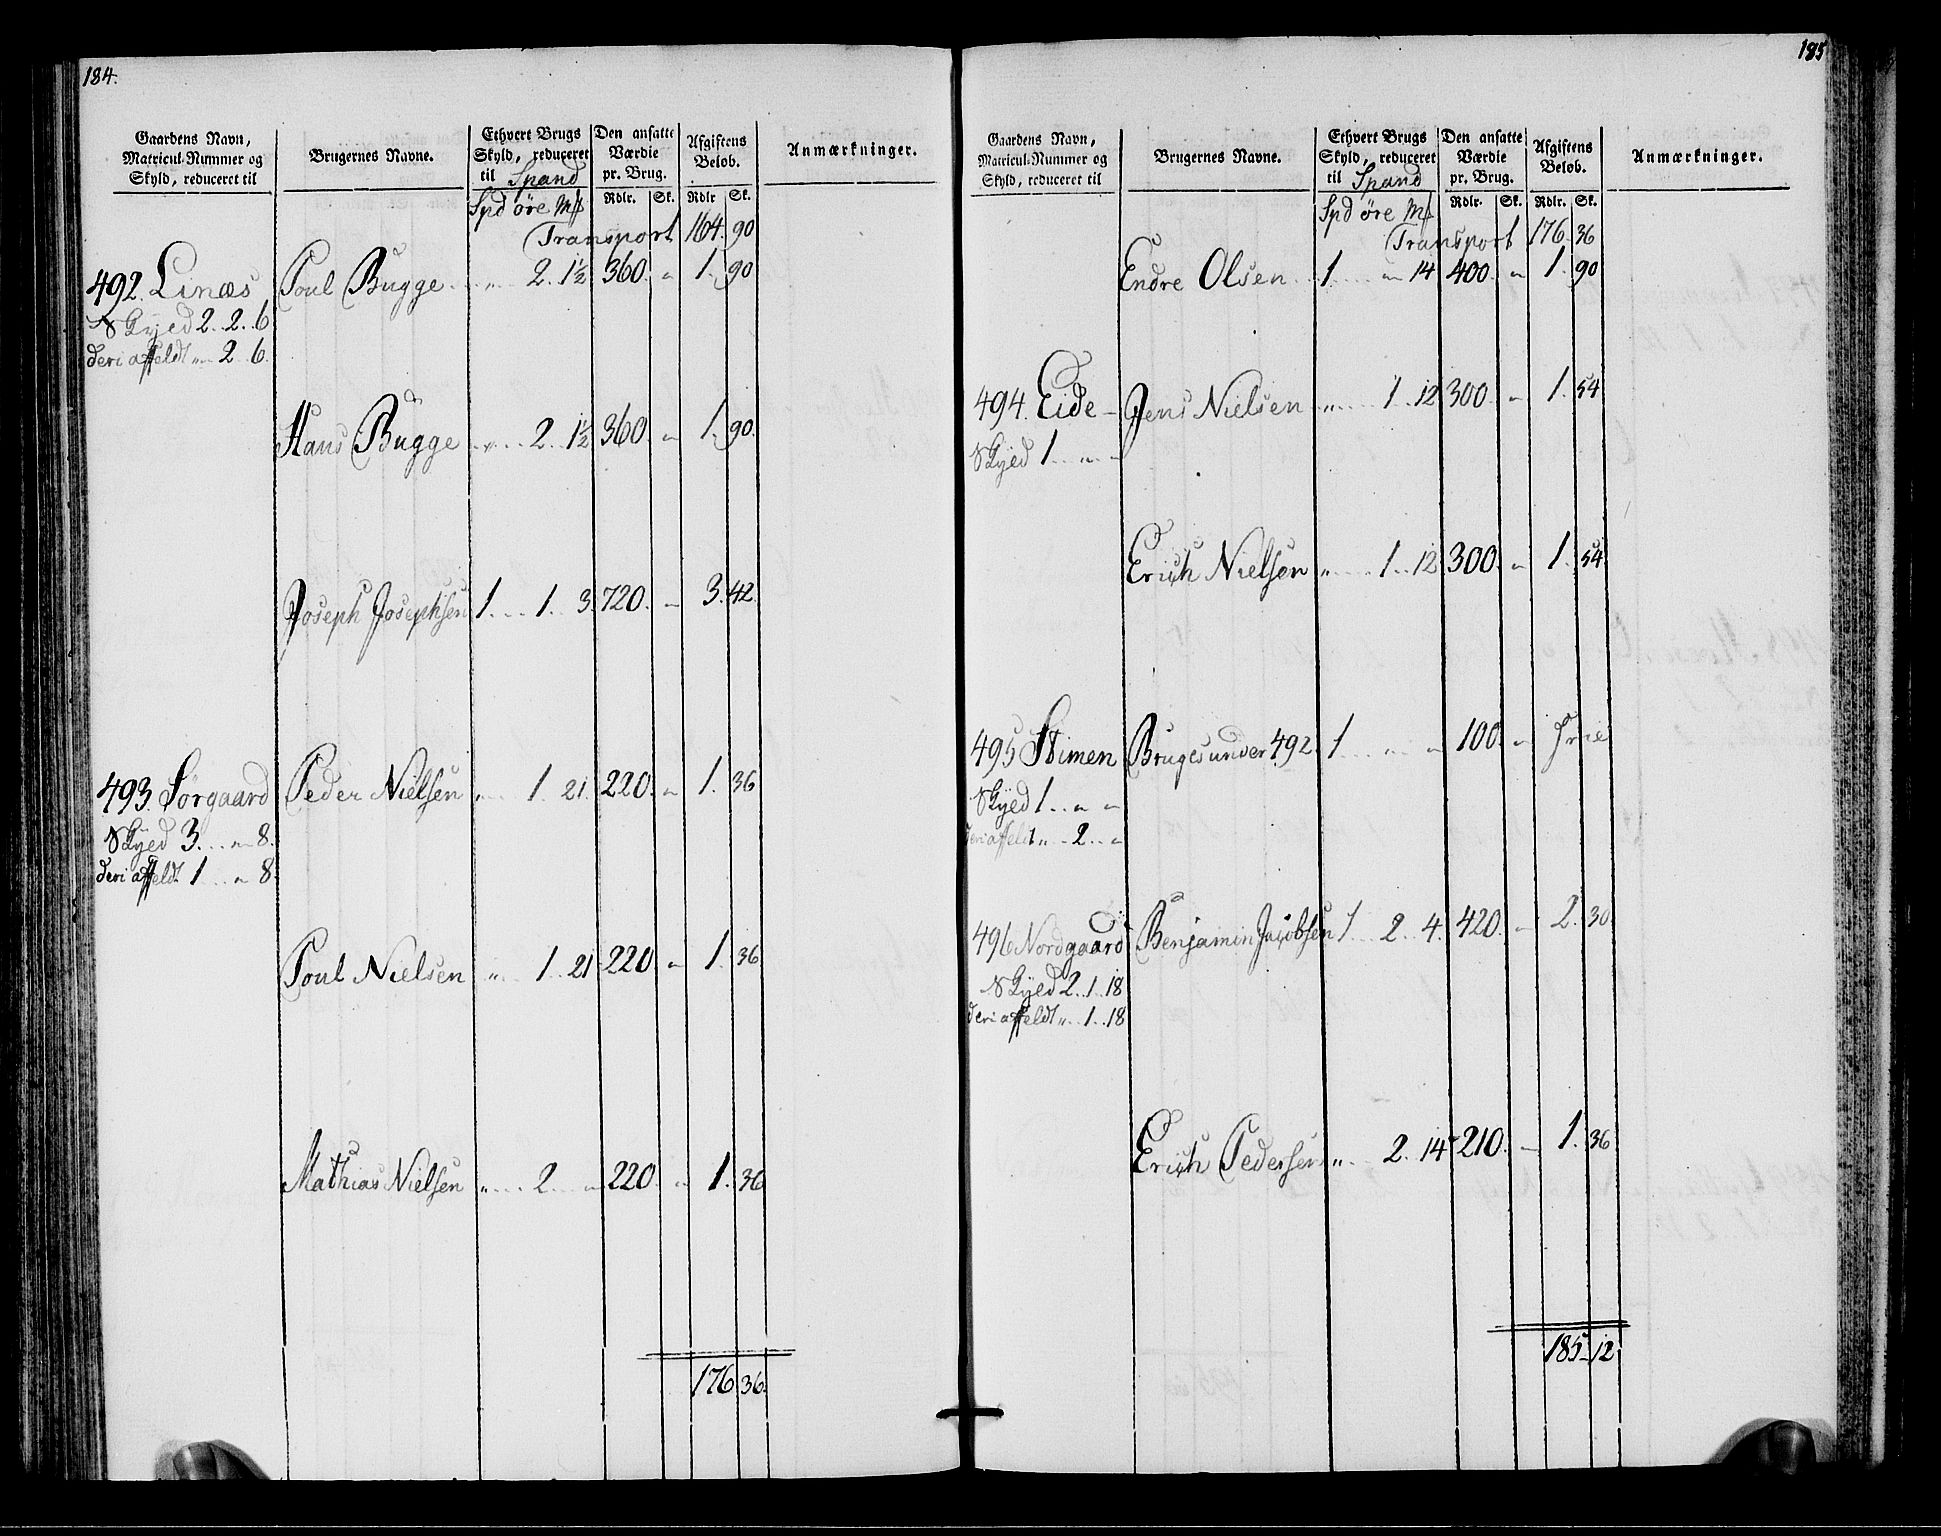 184.
Gaardens Navn, Matricul-Nummer og Skyld, reduceret til
Brugernes Navne.
Ethvert Brugs Skyld, reduceret til Spand
Den ansatte Værdie pr. Brug.
Afgiftens Beløb.
Anmærkninger.
Spd öre Mk Rdlr. Sk. Rdlr Sk.
Transport 164. 90
492. Linæs Poul Bugge „ 2. 1½ 360. „ 1. 90
Skyed 2..2..6
deri affeldt „ 2..6.
Hans Bugge „ 2. 1½ 360. „ 1. 90.
Joseph Josephsen 1. 1. 3. 720. „ 3. 42.
493. Sörgaard Peder Nielsen „ 1. 21. 220. „ 1. 36
Skyed 3. „ 8.
deri affeldt 1 „ 8
Poul Nielsen „ 1. 21 220 „ 1. 36
Mathias Nielsen „ 2 „ 220. „ 1. 36
176 36.
185
Gaardens Navn, Matricul-Nummer og Skyld, reduceret til
Brugernes Navne.
Ethvert Brugs Skyld, reduceret til Spand
Den ansatte Værdie pr. Brug.
Afgiftens Beløb.
Anmærkninger.
Spd öre Mk Rdlr. Sk. Rdlr. Sk.
Transport 176. 36
Endre Olsen 1. „ 14 400. „ 1. 90
494. Eide Jens Nielsen „ 1..12 300. „ 1. 54
Skyed 1 „ „
Erich Nielsen „ 1..12 300. „ 1. 54
495 Stimen Bruges under 492. 1 „ „ 100. „ Frie
Skyed 1 „ „
deri affeldt „ 2 „
496 Nordgaard Benjamin Jacobsen 1 2..4. 420. „ 2. 30.
Skyed 2..1..18
deri affeldt „ 1..18
Erich Pedersen „ 2. 14 210. „ 1. 36
185 12